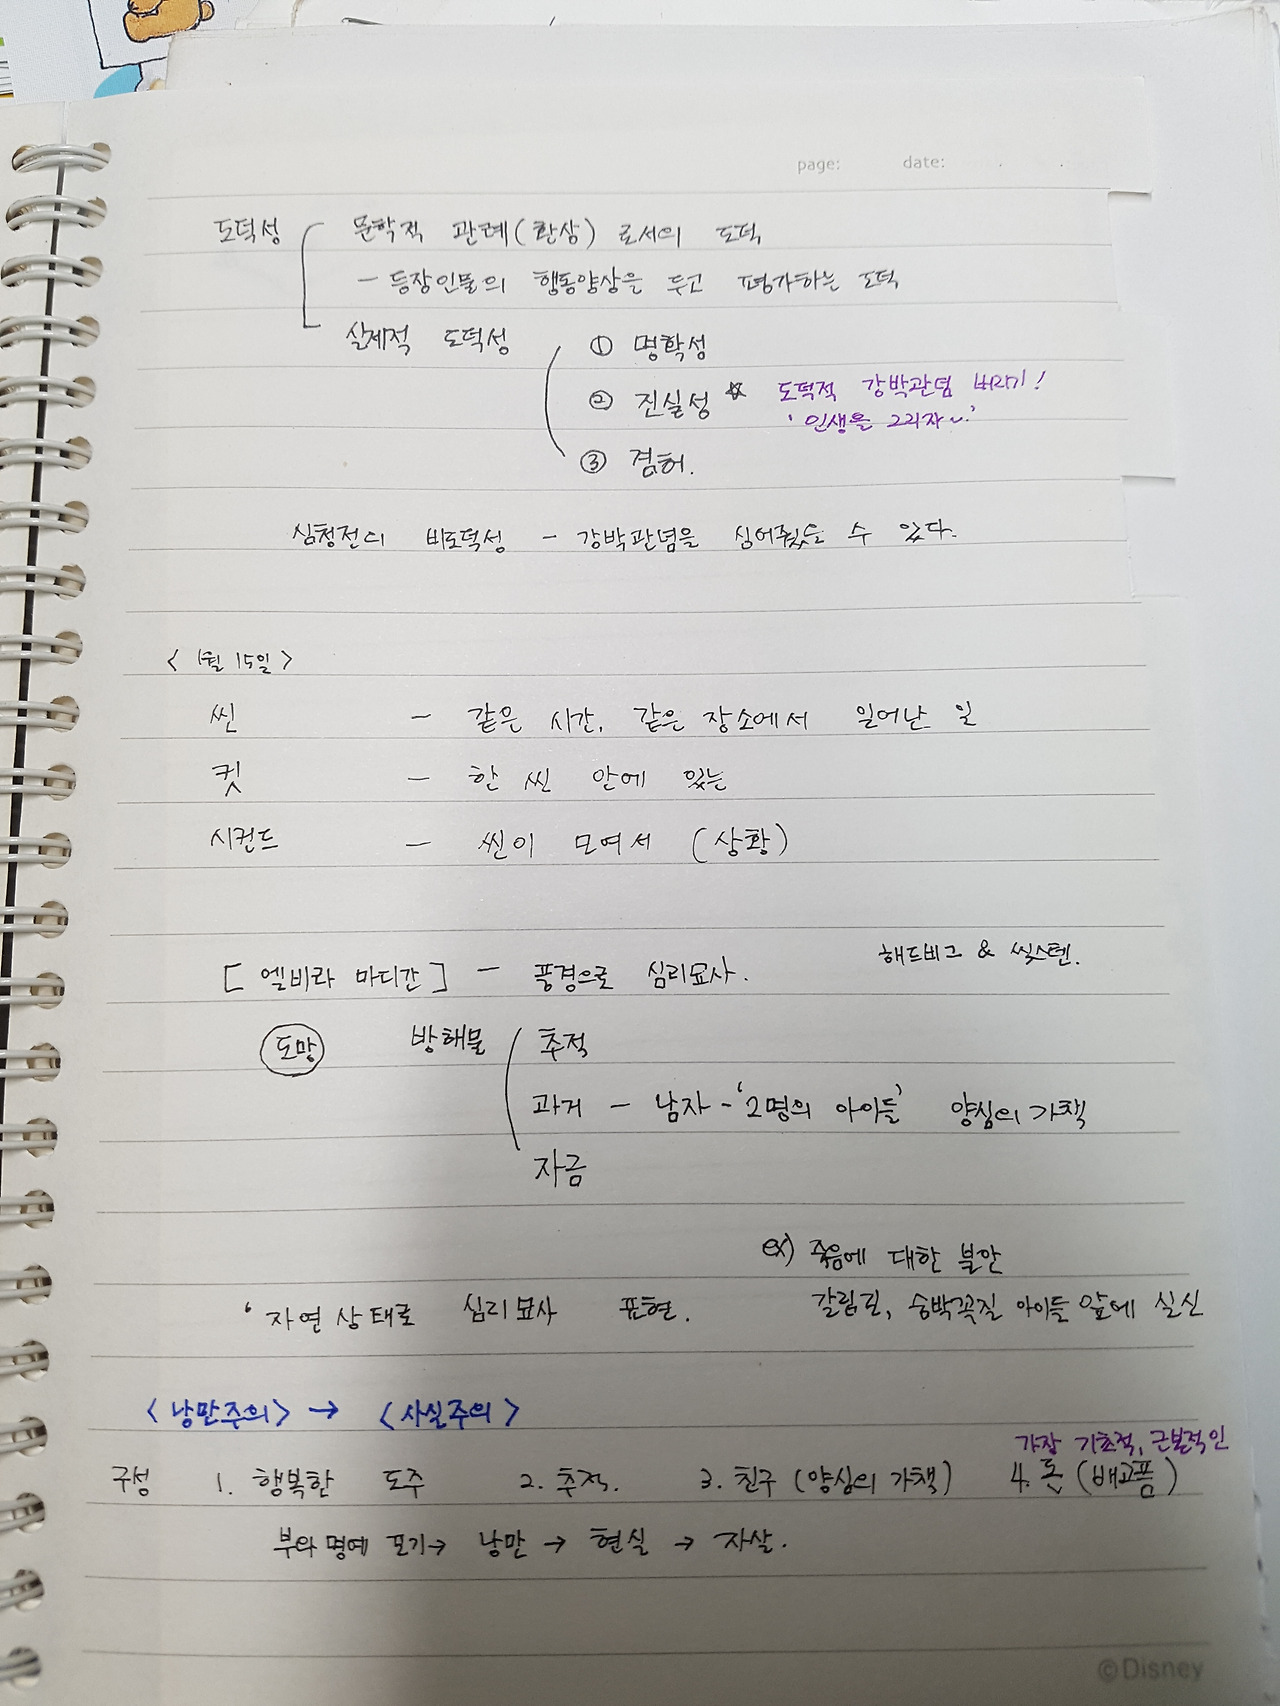 page: date: . .
도덕성 문학적 관례(환상)로서의 도덕
- 등장인물의 행동양상을 두고 평가하는 도덕
실제적 도덕성 ① 명확성
② 진실성 ☆ 도덕적 강박관념 버리기!
'인생을 그리자~'
③ 겸허.
심청전의 비도덕성 - 강박관념을 심어줬을 수 있다.
<1월 15일>
씬 - 같은 시간, 같은 장소에서 일어난 일
컷 - 한 씬 안에 있는
시컨드 - 씬이 모여서 (상황)
[엘비라 마디간] - 풍경으로 심리묘사. 해드비그 & 씩스텐.
도망 방해물 추적
과거 - 남자 - '2명의 아이들' 양심의 가책
자금
ex) 죽음에 대한 불안
' 자연상태로 심리묘사 표현. 갈림길, 숨박꼭질 아이들 앞에 실신
<낭만주의> → <사실주의>
가장 기초적, 근본적인
구성 1. 행복한 도주 2. 추적. 3. 친구 (양심의 가책) 4. 돈 (배고픔)
부와 명예 포기→ 낭만 → 현실 → 자살.
©Disney